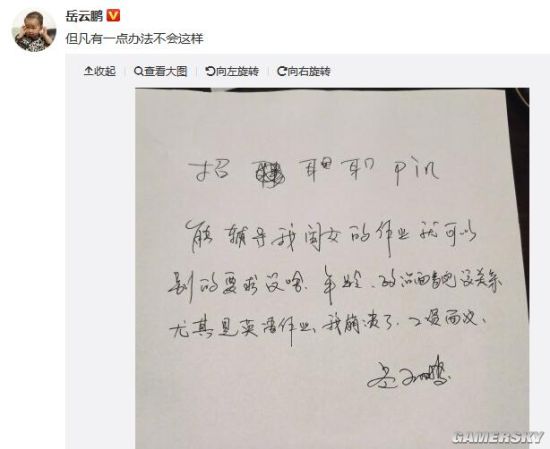 岳云鹏
但凡有一点办法不会这样
收起 查看大图 向左旋转 向右旋转
招 职职 pin
能辅导我闺女的作业就可以
别的要求没啥.年龄、政治面貌没关系
尤其是英语作业,我崩溃了.工资面议.
岳云鹏
GAMERSKY